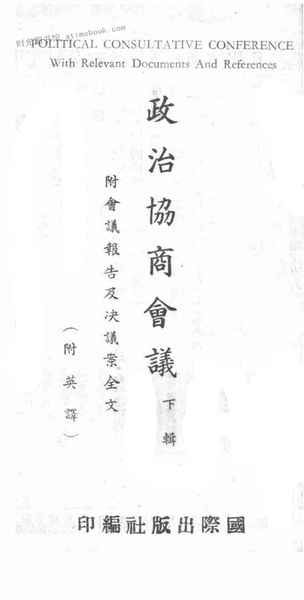 POLITICAL CONSULTATIVE CONFERENCE
With Relevant Documents And References
政治協商會議
下輯
附會議報告及决議案全文
（附英譯）
國際出版社編印